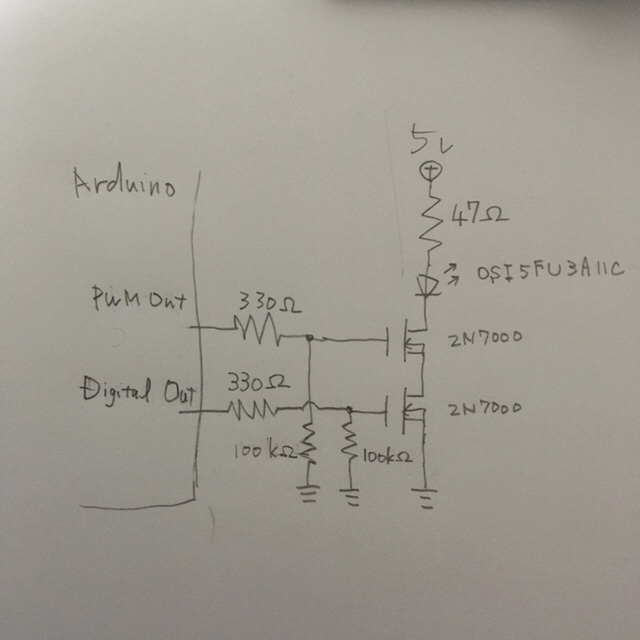 5V
Arduino
47Ω
OSI5FU3A11C
PWM Out
330Ω
2N7000
Digital Out
330Ω
2N7000
100kΩ
100kΩ